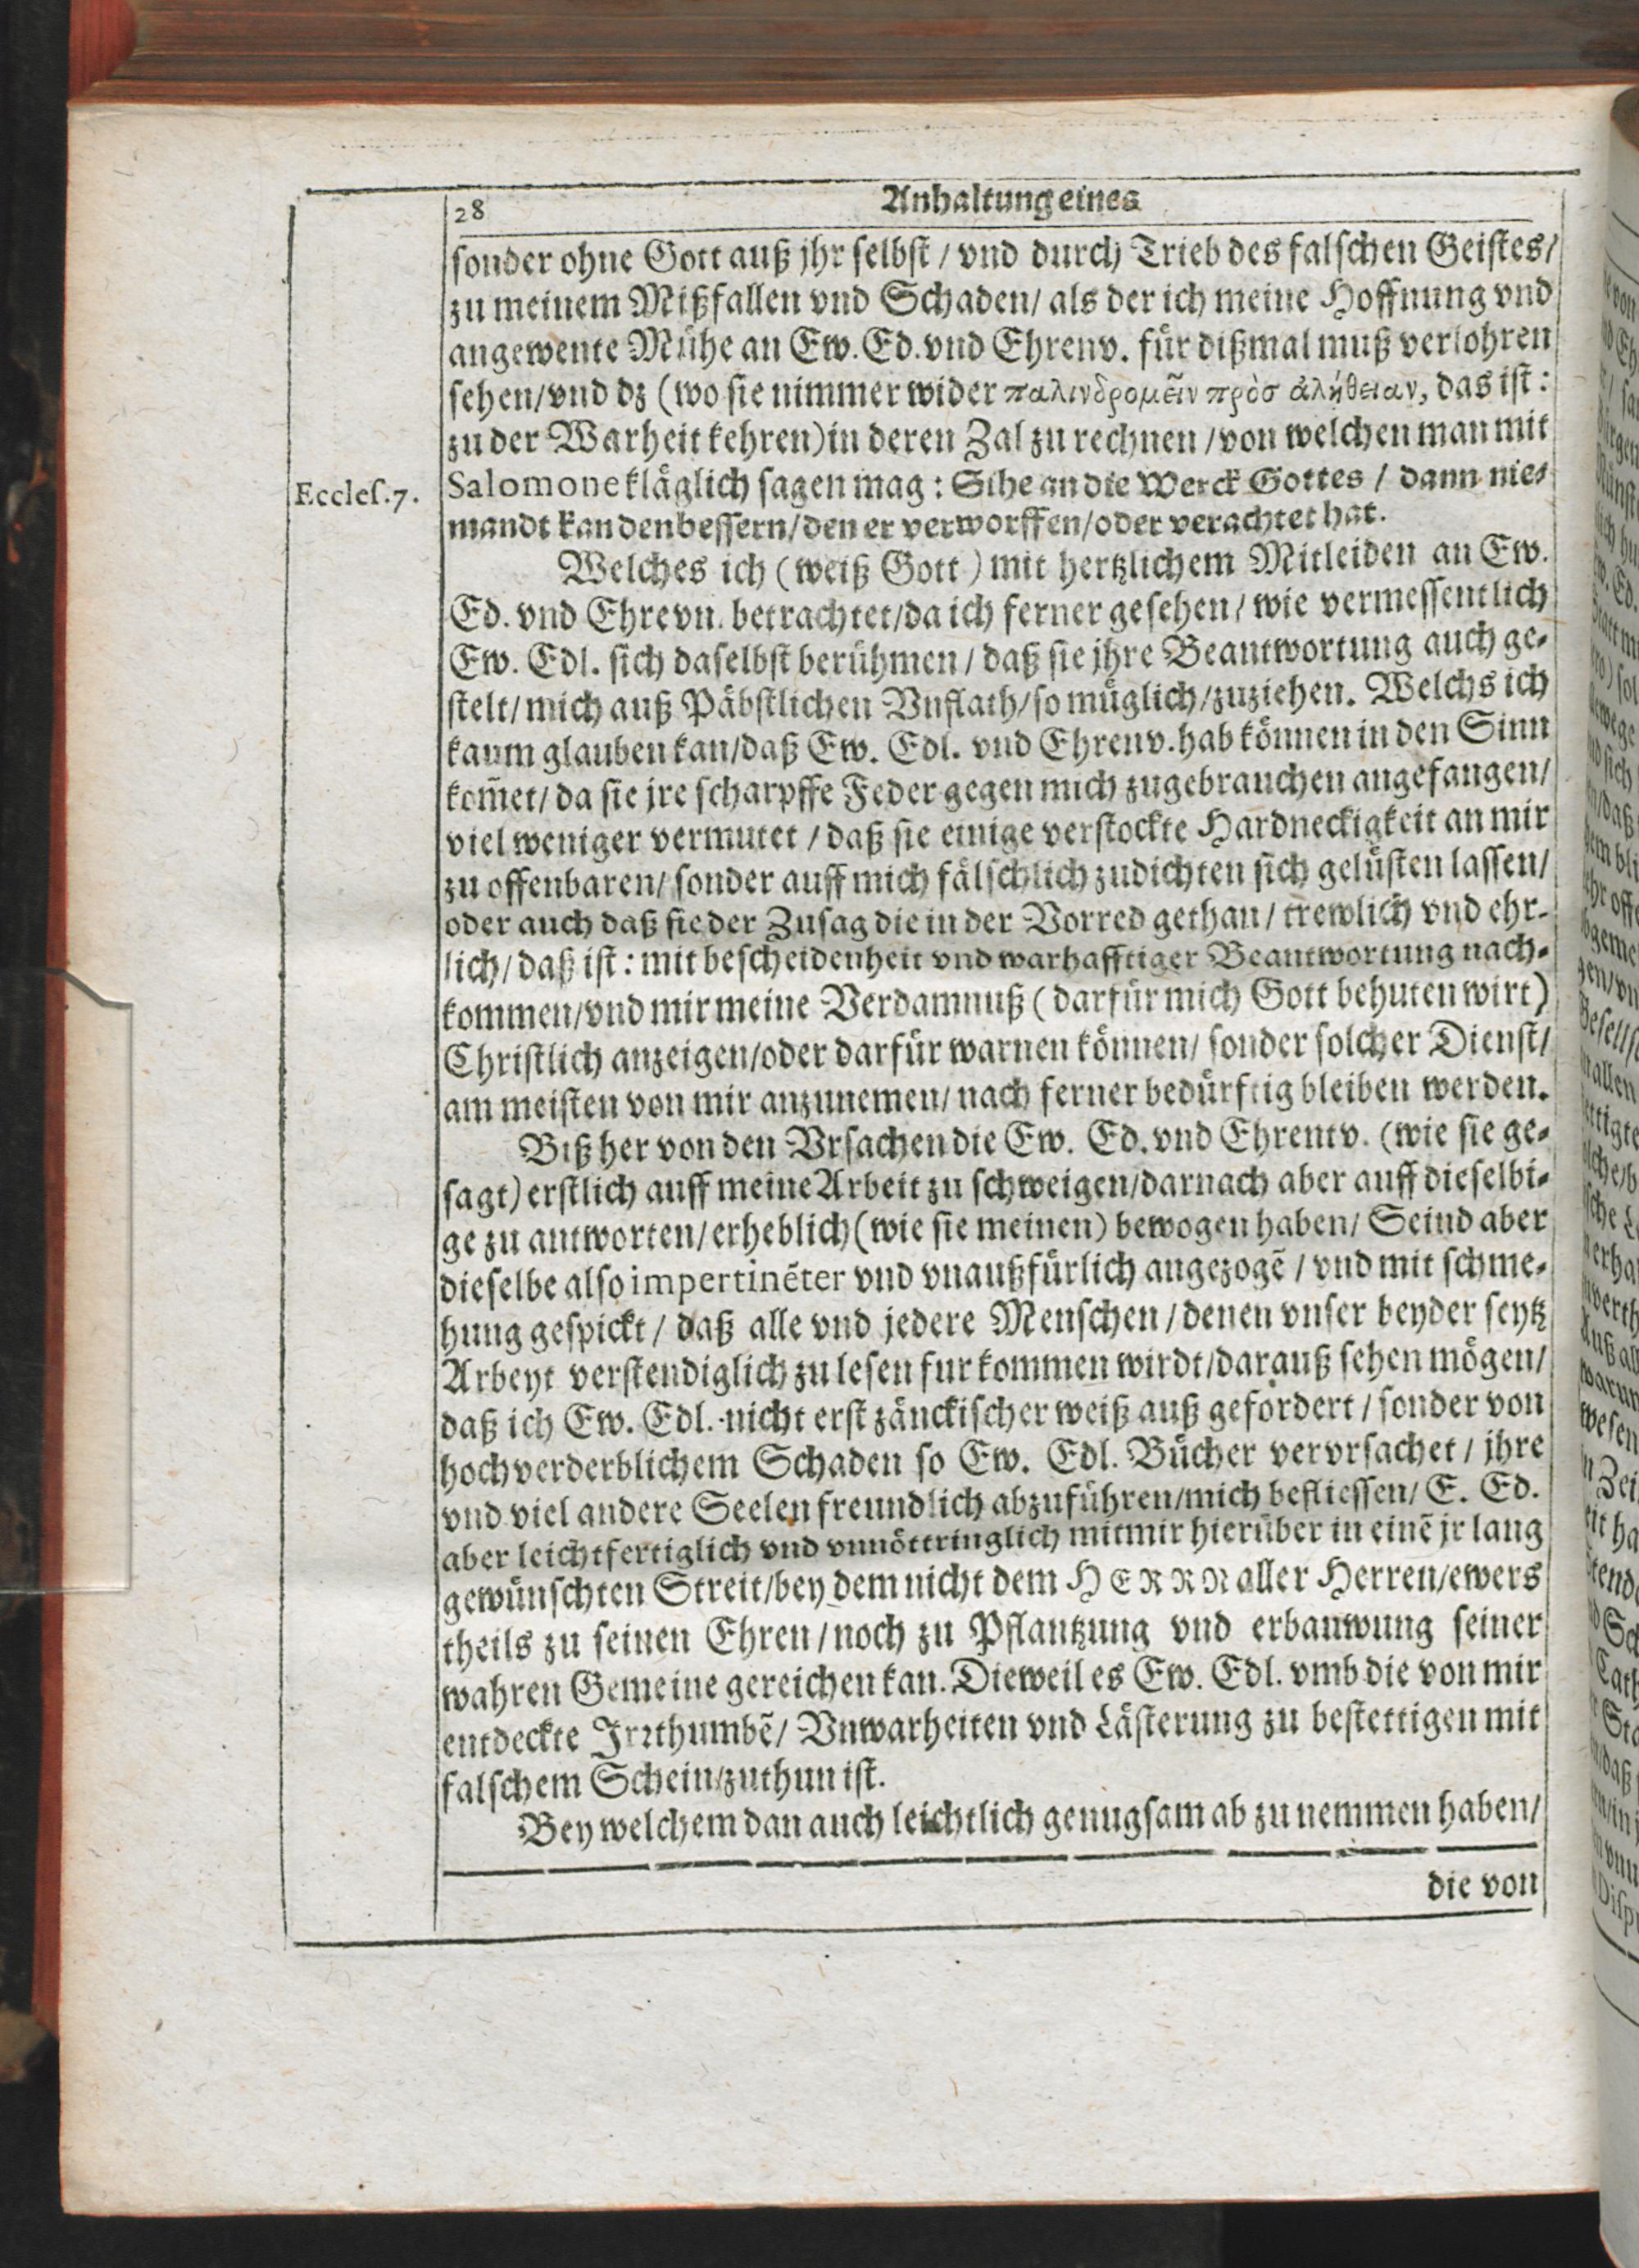 28 Anhaltung eines
sonder ohne Gott auß jhr selbst / vnd durch Trieb des falschen Geistes/
zu meinem Mißfallen vnd Schaden/ als der ich meine Hoffnung vnd
angewente Mühe an Ew. Ed. vnd Ehrenv. für dißmal muß verlohren
sehen/vnd dz (wo sie nimmer wider παλινδρομεῖν πρὸσ ἀλήθειαν, das ist:
zu der Warheit kehren) in deren Zal zu rechnen / von welchen man mit
Eccles. 7.
Salomone kläglich sagen mag: Sihe an die Werck Gottes / dann nie-
mandt kan den bessern/den er verworffen/oder verachtet hat.
Welches ich (weiß Gott) mit hertzlichem Mitleiden an Ew.
Ed. vnd Ehrevn. betrachtet/da ich ferner gesehen/ wie vermessentlich
Ew. Edl. sich daselbst berühmen / daß sie jhre Beantwortung auch ge-
stelt/ mich auß Päbstlichen Vnflath/so müglich/zuziehen. Welchs ich
kaum glauben kan/daß Ew. Edl. vnd Ehrenv. hab können in den Sinn
kom̃et/ da sie jre scharpffe Feder gegen mich zugebrauchen angefangen/
viel weniger vermutet / daß sie einige verstockte Hardneckigkeit an mir
zu offenbaren/ sonder auff mich fälschlich zudichten sich gelüsten lassen/
oder auch daß sie der Zusag die in der Vorred gethan / trewlich vnd ehr-
lich/ daß ist: mit bescheidenheit vnd warhafftiger Beantwortung nach-
kommen/vnd mir meine Verdamnuß (darfür mich Gott behuten wirt)
Christlich anzeigen/oder darfür warnen können/ sonder solcher Dienst/
am meisten von mir anzunemen/ nach ferner bedürfftig bleiben werden.
Biß her von den Vrsachen die Ew. Ed. vnd Ehrentv. (wie sie ge-
sagt) erstlich auff meine Arbeit zu schweigen/darnach aber auff dieselbi-
ge zu antworten/ erheblich (wie sie meinen) bewogen haben/ Seind aber
dieselbe also impertinẽter vnd vnaußfürlich angezogẽ / vnd mit schme-
hung gespickt / daß alle vnd jedere Menschen / denen vnser beyder seytz
Arbeyt verstendiglich zu lesen furkommen wirdt/darauß sehen mögen/
daß ich Ew. Edl. nicht erst zänckischer weiß auß gefordert / sonder von
hochverderblichem Schaden so Ew. Edl. Bücher vervrsachet / jhre
vnd viel andere Seelen freundlich abzuführen/mich befliessen/ E. Ed.
aber leichtfertiglich vnd vnnöttringlich mit mir hierüber in einẽ jr lang
gewünschten Streit/bey dem nicht dem HERRN aller Herren/ewers
theils zu seinen Ehren / noch zu Pflantzung vnd erbauwung seiner
wahren Gemeine gereichen kan. Dieweil es Ew. Edl. vmb die von mir
entdeckte Irrthumbẽ/ Vnwarheiten vnd Lästerung zu bestettigen mit
falschem Schein/zuthun ist.
Bey welchem dan auch leichtlich genugsam ab zu nemmen haben/
die von